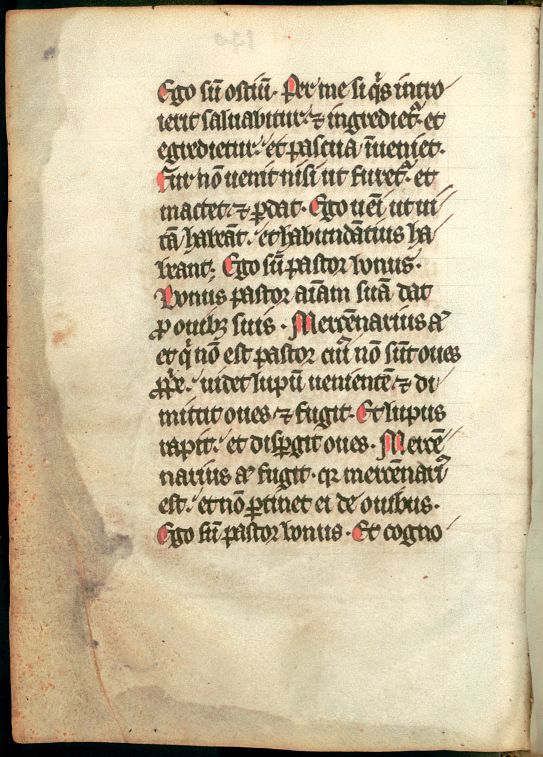 Ego sū ostiū. Per me si q̇s intro
ierit saluabitur. ⁊ ingrediet᷑. et
egredietur. et pascua īueniet.
Fur nō uenit nisi ut furet᷑. et
mactet. ⁊ ꝑdat. Ego uēi ut ui
tā habeāt. et habundātius ha
beant. Ego sū pastor bonus.
Bonus pastor aīam suā dat
ꝓ ouibꝫ suis. Mercēnarius aͭ
et qͥ nō est pastor cuiꝰ nō sūt oues
ꝓpͥe. uidet lupū uenientē. ⁊ di
mittit oues ⁊ fugit. Et lupus
rapit. et disꝑgit oues. Mercē
narius aͭ fugit. qꝛ mercēnariꝰ
est. et nō ꝑtinet ei de ouibus.
Ego sū pastor bonus. Et cogno